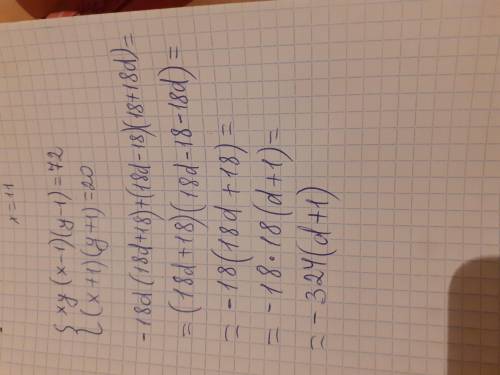 x=11
{ xy(x-1)(y-1)=72
{ (x+1)(y+1)=20
-18d(18d+18)+(18d-18)(18+18d)=
=(18d+18)(18d-18-18d)=
=-18(18d+18)=
=-18·18(d+1)=
=-324(d+1)